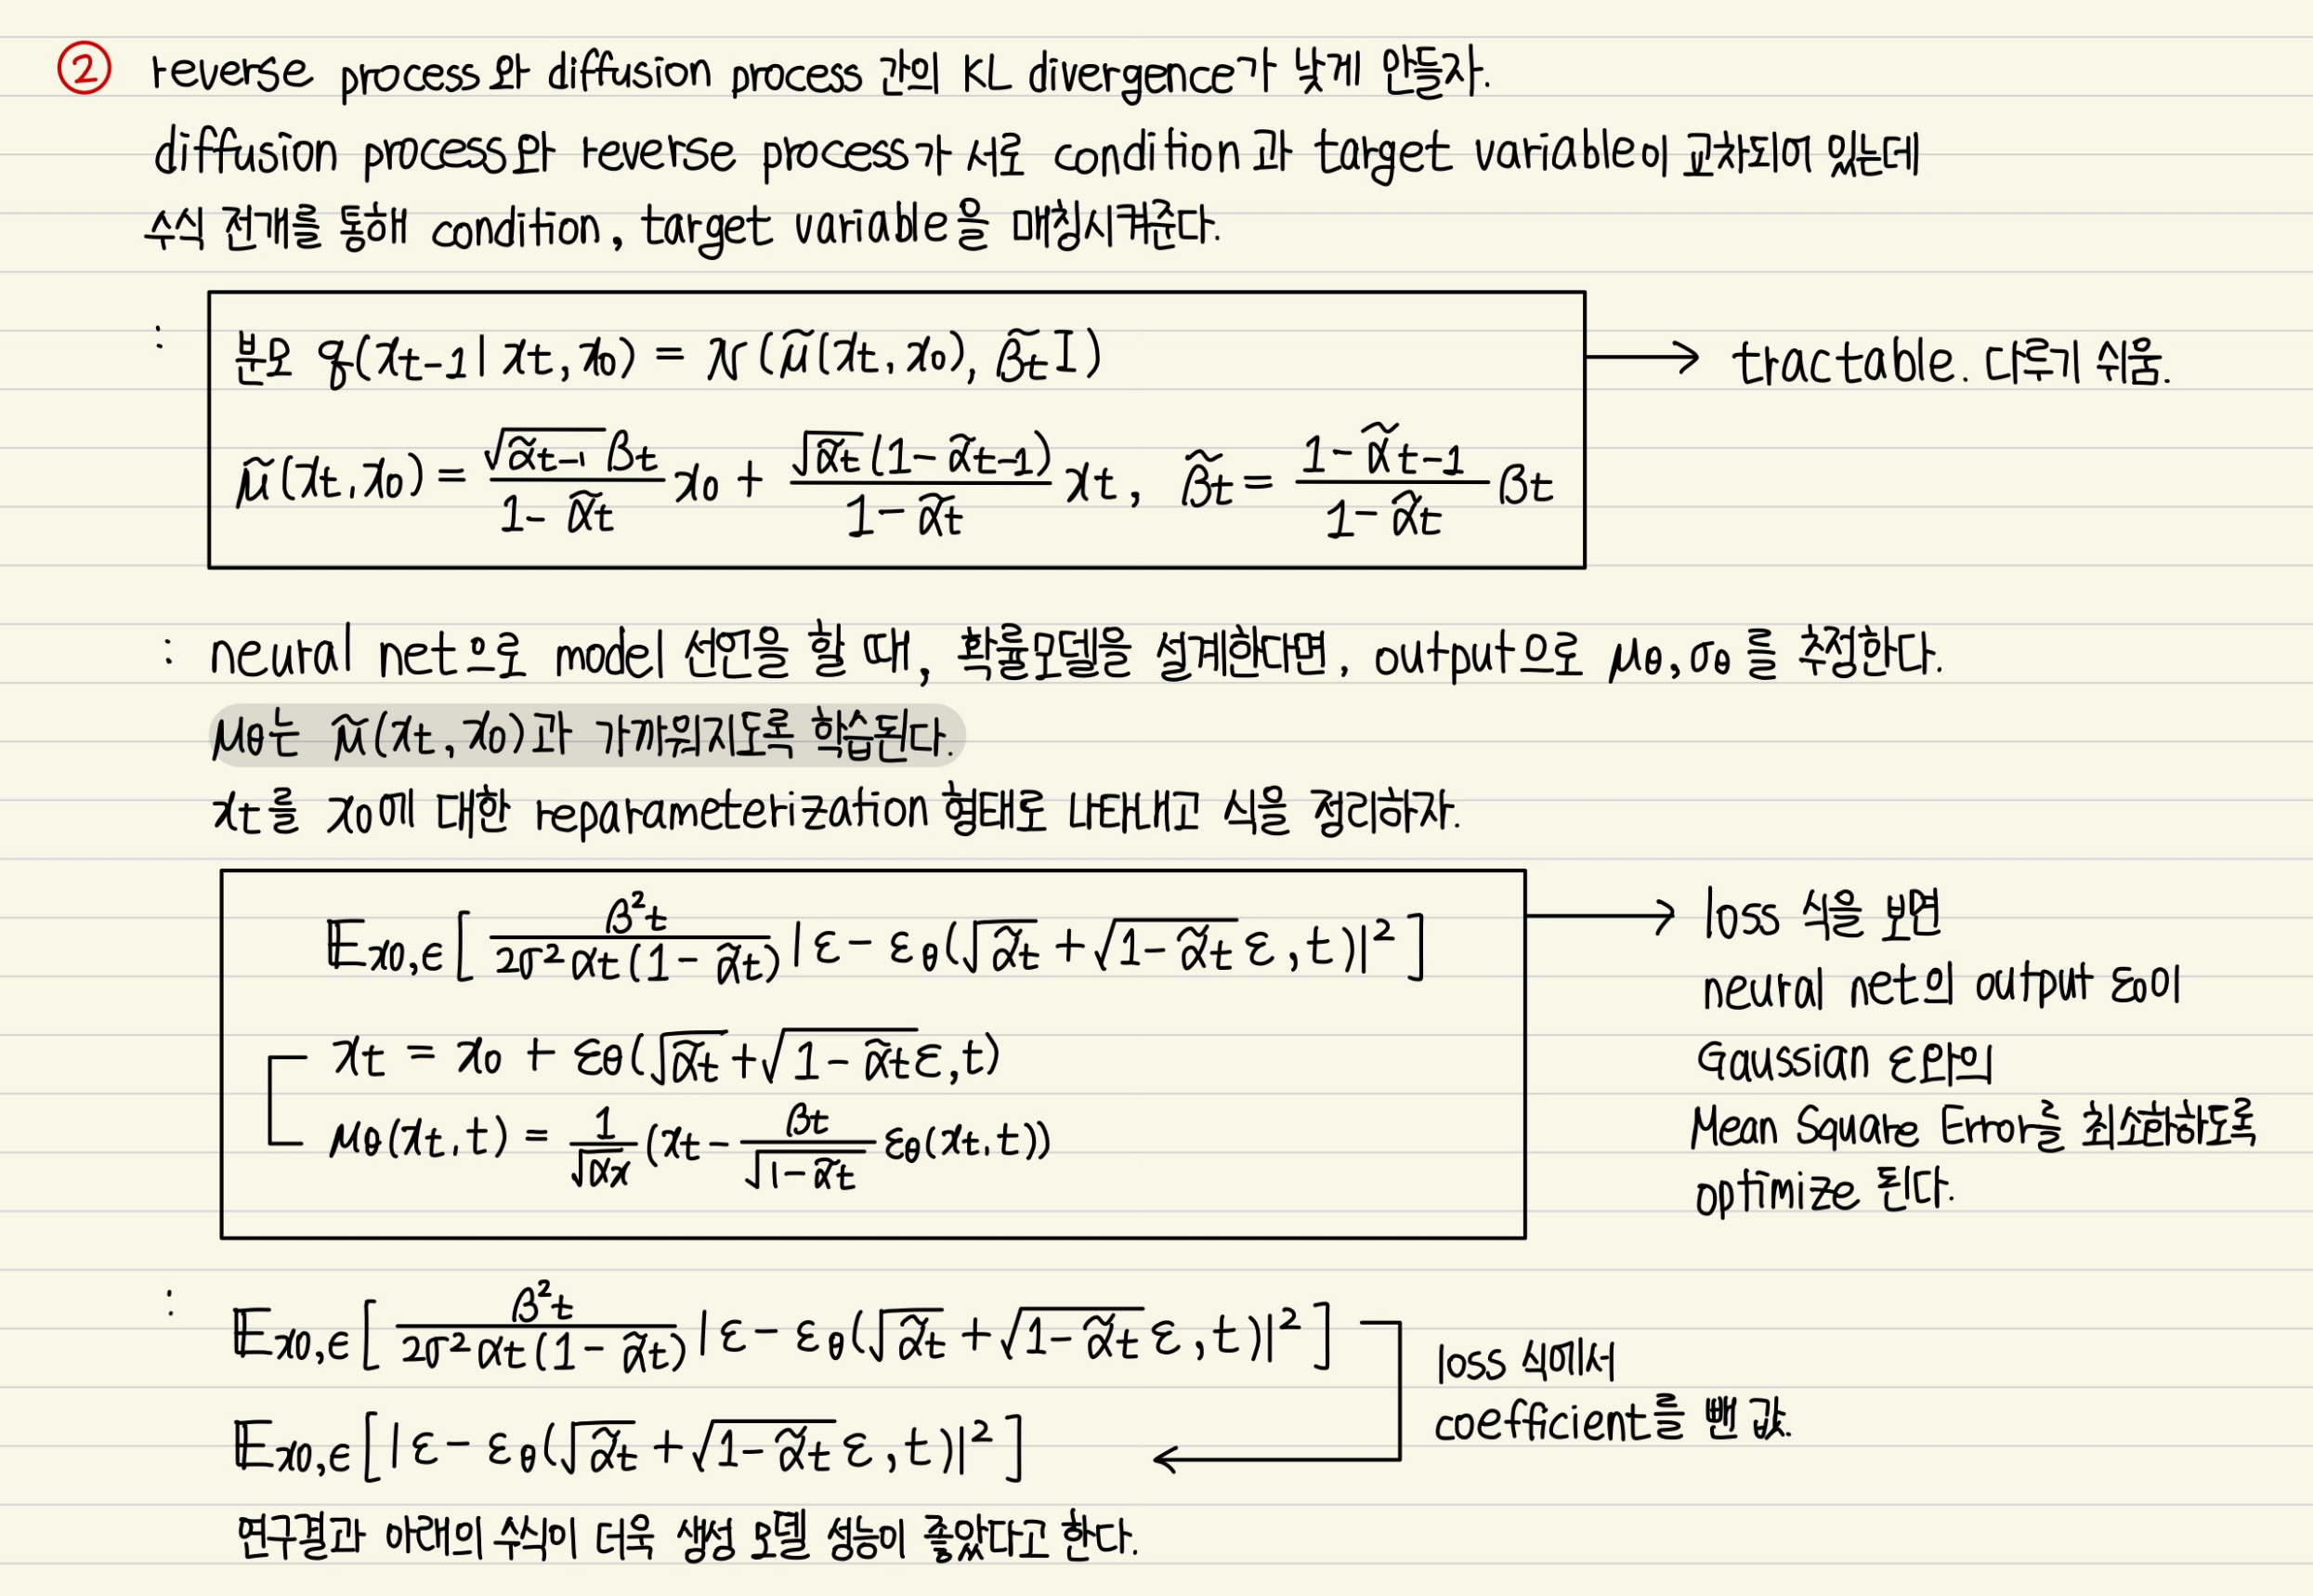 ② reverse process와 diffusion process 간의 KL divergence가 낮게 만들자.
diffusion process와 reverse process가 서로 condition과 target variable이 교차되어 있는데
수식 전개를 통해 condition, target variable을 매칭시켜준다.
: 분모 q(x_{t-1} | x_t, x_0) = N(μ̃(x_t, x_0), β̃_t I) → tractable. 다루기 쉬움.
μ̃(x_t, x_0) = \frac{\sqrt{α̃_{t-1}} β_t}{1 - α̃_t} x_0 + \frac{\sqrt{α̃_t}(1 - α̃_{t-1})}{1 - α̃_t} x_t, β̃_t = \frac{1 - α̃_{t-1}}{1 - α̃_t} β_t
: neural net으로 model 선언을 할 때, 확률모델을 설계한다면, output으로 μ_θ, σ_θ를 추정한다.
μ_θ는 μ̃(x_t, x_0)과 가까워지도록 학습된다.
x_t를 x_0에 대한 reparameterization 형태로 나타내고 식을 정리하자.
E_{x_0,ϵ}[\frac{β²_t}{2σ²α_t(1 - α̃_t)} |ε - ε_θ(\sqrt{α̃_t} + \sqrt{1 - α̃_t} ε, t)|²]
x_t = x_0 + ε_θ(\sqrt{α̃_t} + \sqrt{1 - α̃_t} ε, t)
μ_θ(x_t, t) = \frac{1}{\sqrt{α_x}}(x_t - \frac{β_t}{\sqrt{1 - α̃_t}} ε_θ(x_t, t))
→ loss 식을 보면
neural net의 output ε_θ이
Gaussian ε만의
Mean Square Error를 최소화하도록
optimize 된다.
: E_{x_0,ϵ}[\frac{β²_t}{2σ²α_t(1 - α̃_t)} |ε - ε_θ(\sqrt{α̃_t} + \sqrt{1 - α̃_t} ε, t)|²]
loss 식에서
coefficient를 뺀 값.
E_{x_0,ϵ}[|ε - ε_θ(\sqrt{α̃_t} + \sqrt{1 - α̃_t} ε, t)|²] ←
연구결과 아래의 수식이 더욱 생성 모델 성능이 좋았다고 한다.